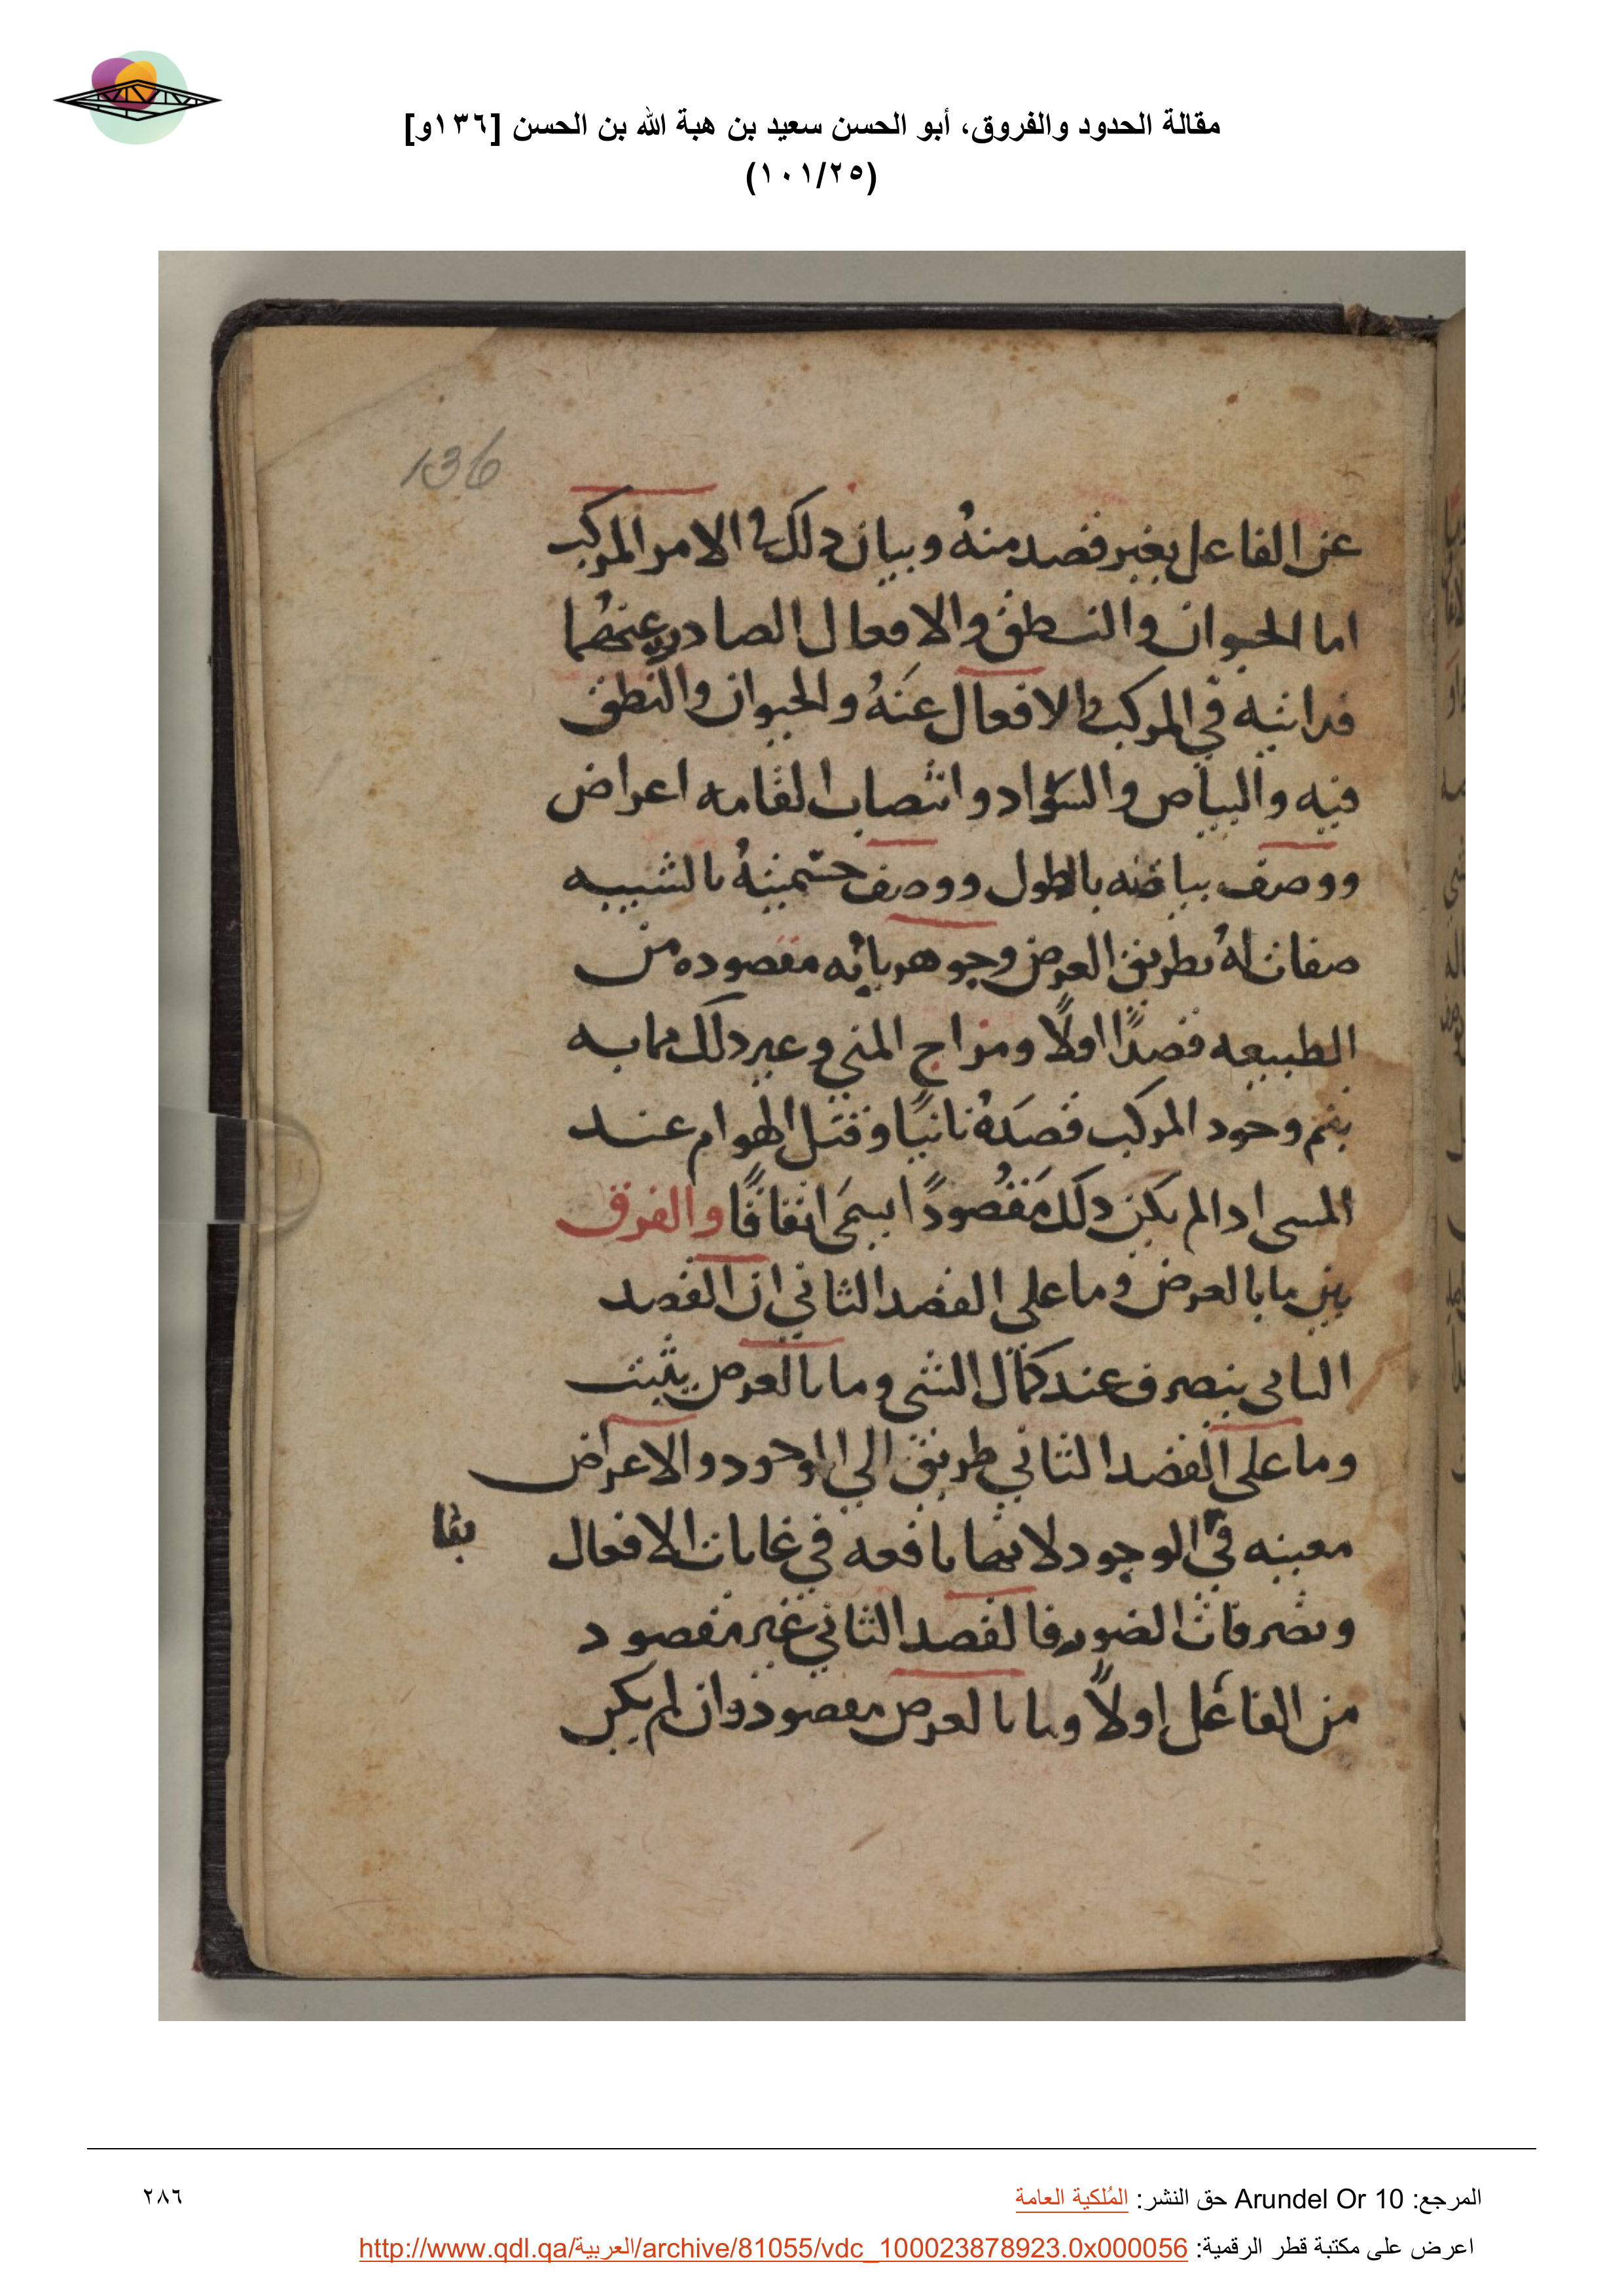 مقالة الحدود والفروق، أبو الحسن سعيد بن هبة الله بن الحسن [١٣٦و]
(١٠١/٢٥)
136
عن الفاعل بغير قصد منهُ وبيان دلك في الامر المركب
اما الحيوان والنطق والافعال الصادره عنهُما
فداتيه في المركب والافعال عنَهُ والحيوان والنطق
فيه والبياض والسواد وانتصاب القامه اعراض
ووصف بياضه بالطول ووصف جسميتهُ بالشبيبه
صفات لهُ بطريق العرض وجوهرياته مقصوده من
الطبيعه قصدًا اولًا ومزاج المني وغير دلك مما به
يتم وجود المركب قصدَهُ ثانيًا وقتل الهوام عند
المسى ادا لم يكن دلك مَقصُودًا يسمَى اتفاقًا والفرق
بين ما بالعرض وما على القصد الثاني ان القصد
الثاني ينصرف عند كمال الشي وما بالعرض يثبت
وما على القصد الثاني طريق الي الوجود والاعراض
معينه في الوجود لانها نافعه في غايات الافعال
بقا
وتصرفات الصور فالقصد الثاني غير مقصود
من الفاعل اولًا وما بالعرض مقصود وان لم يكن
المرجع: Arundel Or 10 حق النشر: المُلكية العامة
٢٨٦
اعرض على مكتبة قطر الرقمية: http://www.qdl.qa/العربية/archive/81055/vdc_100023878923.0x000056